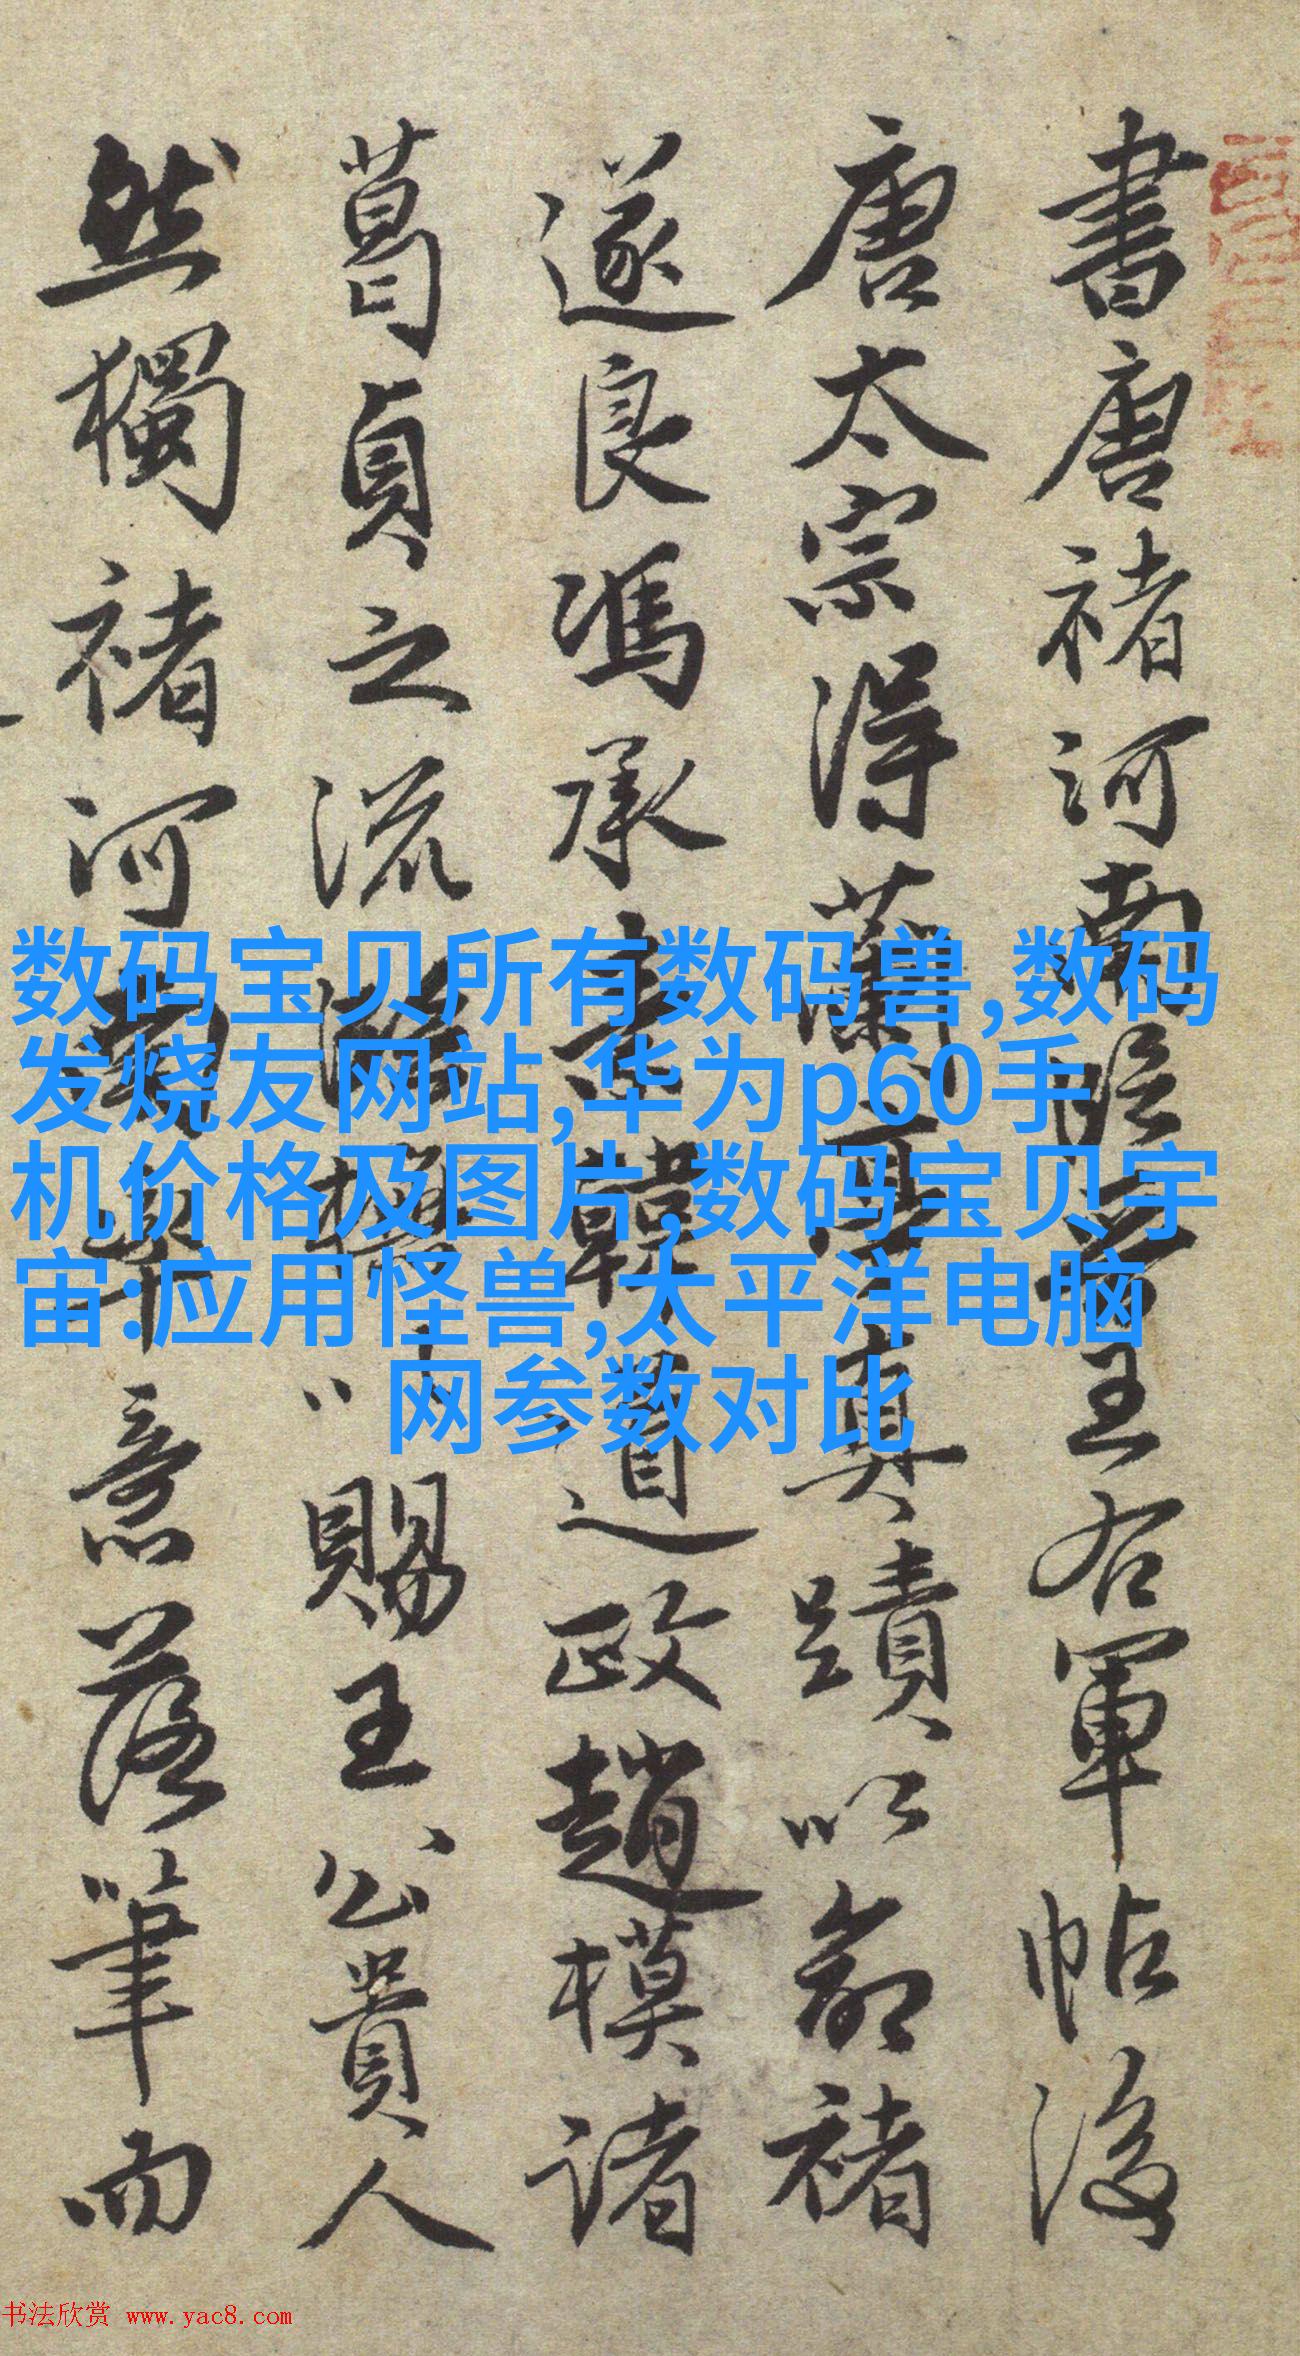 書唐褚河南臨晉王右軍帖後
唐太宗得蘭亭真蹟以命褚
遂良馮承素韓道政趙模諸
葛貞之流以賜王公貴人
然獨褚河南率意落筆而
数码宝贝所有数码兽,数码
发烧友网站,华为p60手
机价格及图片,数码宝贝宇
宙:应用怪兽,太平洋电脑
网参数对比
书法欣赏 www.yac8.com